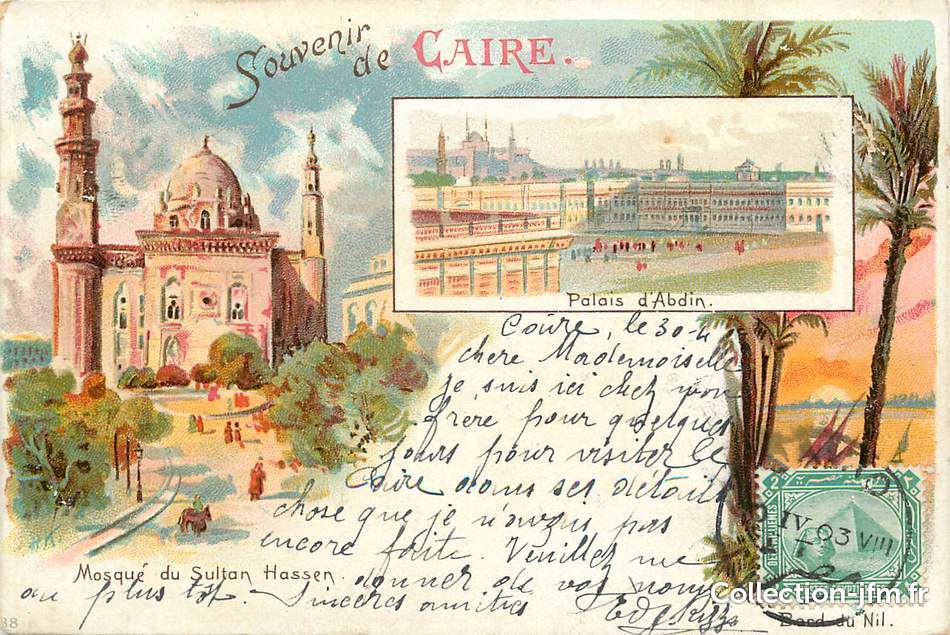 Souvenir
de CAIRE.
Palais d'Abdin.
Caire, le 30-4
chere Mademoiselle
je suis ici chez mon
frère pour quelques
jours pour visiter le
Caire dans ses détails
chose que je n'avais pas
encore faite. Veuillez me
donner de vos nouv
au plus tôt. Sincères amitiés
Mosqué du Sultan Hassen.
IV 03 VIII
2
Collection-jfm.fr
Bord du Nil.
HK
38